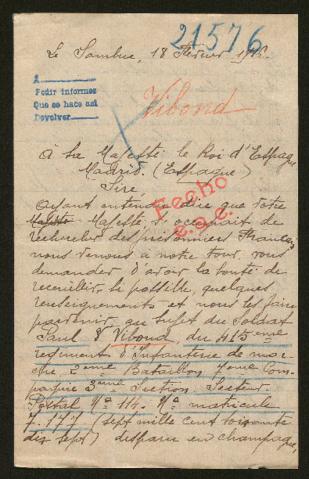 21576
Le Sambuc, 18 Février 191.
A
Pedir informes
Que se hace así
Devolver
Vibond
À Sa Majesté le Roi d'Espagne
Madrid. (Espagne)
Sire,
Ayant entendu dire que Votre
Majesté s'occupait de
rechercher des prisonniers Français
nous venons à notre tour, vous
demander d'avoir la bonté de
recueillir, si possible, quelques
renseignements et nous les faire
parvenir, au sujet du Soldat
Paul Vibond, du 415ème
regiment d'Infanterie de mar-
che 2ème Bataillon 7ème Com-
pagnie 3ème Section. Secteur
Postal Nº 114. Nº matricule
7.177 (sept mille cent soixante
dix sept) disparu en champagne,
Fecho